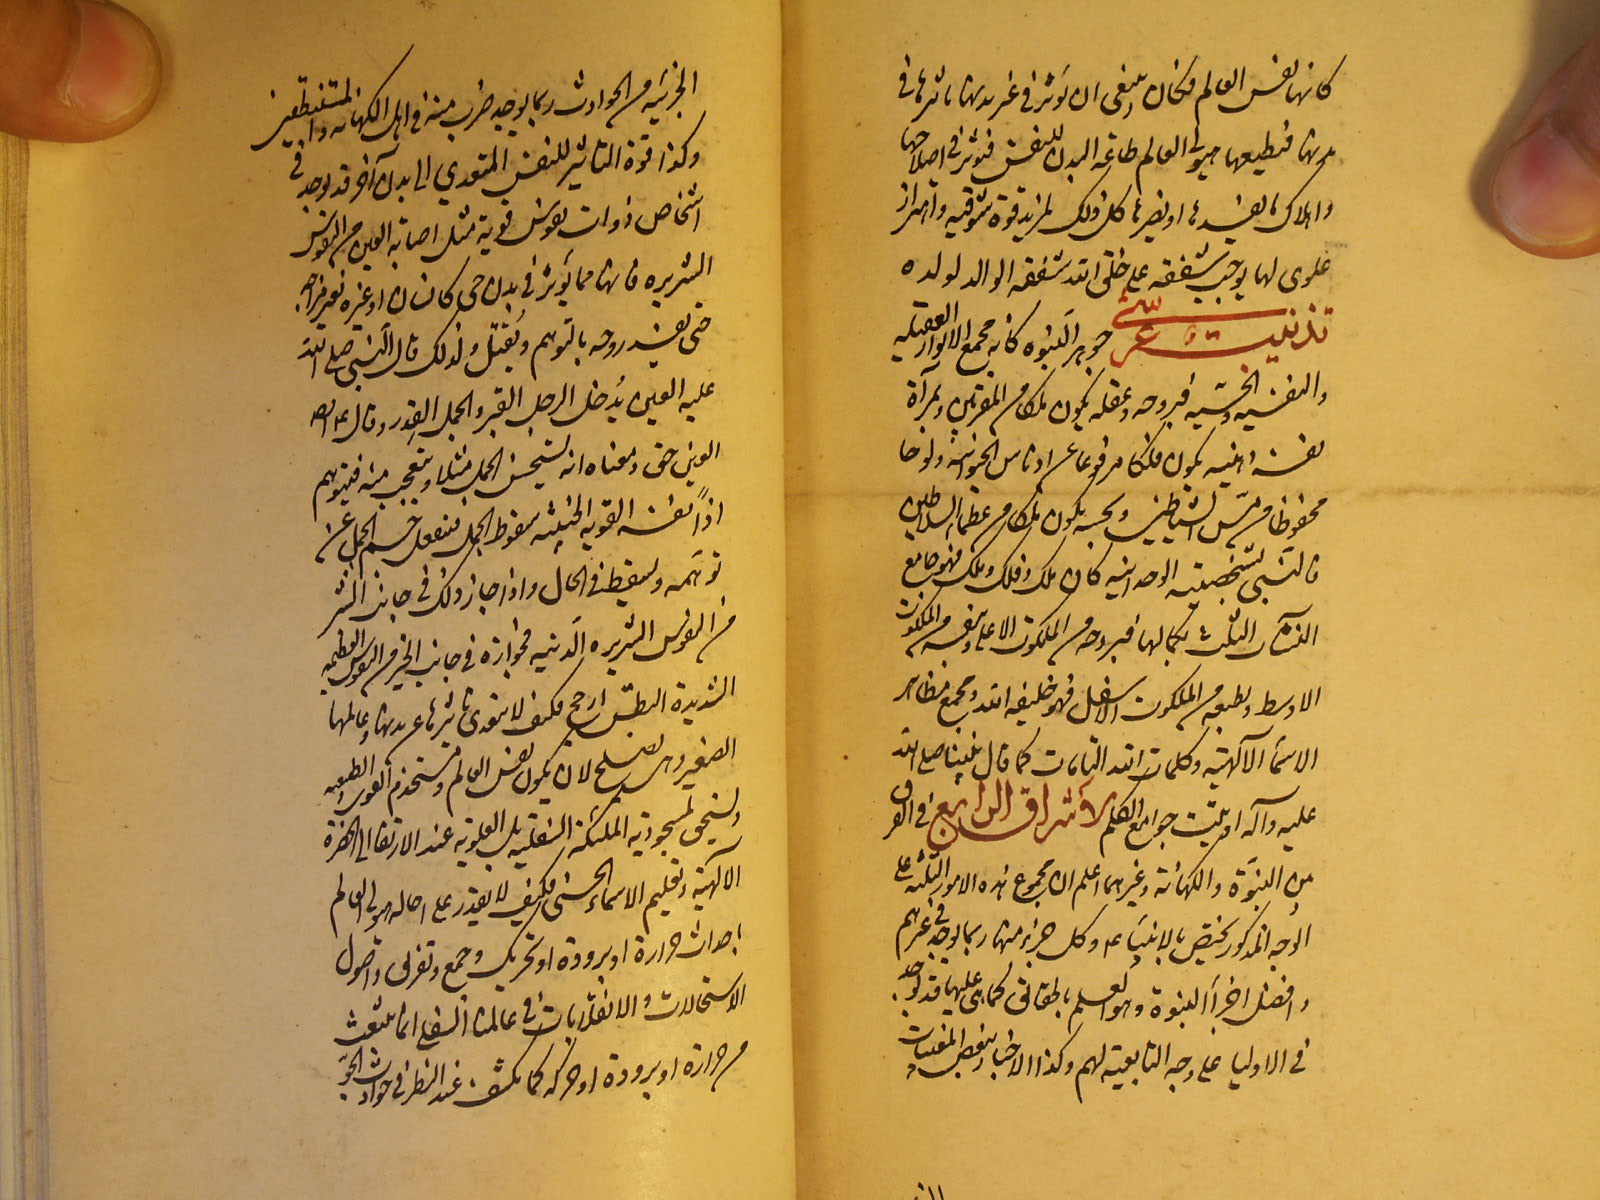 كانها نفس العالم فكان ينبغى ان يؤثر فى غير بدنها تاثيرها فى
بدنها فتطيعها هيولى العالم طاعة البدن للنفس فتؤثر فى اصلاحها
واهلاك ما يفسدها او يضرها كل ذلك لمزيد قوة شوقيه واهتزاز
علوى لها يوجب شفقه على خلق الله شفقه الوالد لولده
تذنيب عرشى جوهر النبوه كانه مجمع الانوار العقليه
والنفسيه والحسيه فبروحه وعقله يكون ملكا من المقربين وبمرآة
نفسه وذهنه يكون فلكا مرفوعا عن ادناس الحيوانيه ولوحا
محفوظا من مس الشياطين وبحسه يكون ملكا من عظماء السلاطين
فالنبى بشخصيته الوحدانيه كان ملك وفلك وملك فهو جامع
النشآت الثلث بكمالها فبروحه من الملكوت الاعلى وبنفسه من الملكوت
الاوسط وبطبعه من الملكوت الاسفل فهو خليفه الله ومجمع مظاهر
الاسمآ الالهيه وكلمات الله التامات كما قال نبينا صلى الله
عليه وآله اوتيت جوامع الكلم الاشراق الرابع فى الفرق
بين النبوة والكهانة وغيرهما اعلم ان مجموع هذه الامور الثلثه على
الوجه المذكور يختص بالانبيآء وكل جزء منها ربما يوجد فى غيرهم
وافضل اجزآ النبوة وهو العلم بالحقائق كما هى عليها قد يوجد
فى الاوليا على وجه التابعية لهم وكذا الاخبار ببعض المغيبات
الجزئيه من الحوادث ربما يوجد ضرب منه فى اهل الكهانه والمستنطقين
وكذا قوة التاثير للنفس المتعدي الى بدن آخر قد يوجد فى
اشخاص ذوات نفوس قوية مثل اصابة العين من النفوس
الشريره فانها مما يؤثر فى بدن حى كانسان او غيره تفسد مزاجه
حتى تفسد روحه بالتوهم ويقتل ولذلك قال النبى صلى الله
عليه العين يدخل الرجل القبر والجمل القدر وقال
العين حق ومعناه انه يستحسن الجمل مثلا ويتعجب منه فيتوهم
اذا نفسه القويه الخبيثه سقوط الجمل فينفعل جسم الجمل عن
توهمه ويسقط فى الحال واذا جاز ذلك فى جانب الشر
من النفوس الشريره الدنيه فجوازه فى جانب الخير من النفوس العظيمه
الشديدة البطش ارجح فكيف لا يتعدى تاثيرها عن بدنها وعالمها
الصغير وهى يصلح لان يكون نفس العالم ومستخدم القوى الطبيعيه
ويستحق لمسجودية الملئكة السفليه بل العلويه عند الارتقا الى الحضرة
الالهيه وتعليم الاسماء الحسنى فكيف لا يقدر على احاله هيولى العالم
باحداث حرارة او برودة او تحريك وجمع وتفريق واصول
الاستحالات والانقلابات فى عالمنا السفلى انما ينبعث
من حرارة او برودة او حركه كما ينكشف عند النظر فى حوادث الجو